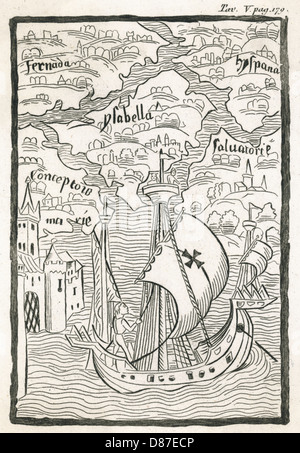 Tav. V pag. 179.
fernada
hyspana
ysabella
saluatorie
Conceptoō
marie
alamy